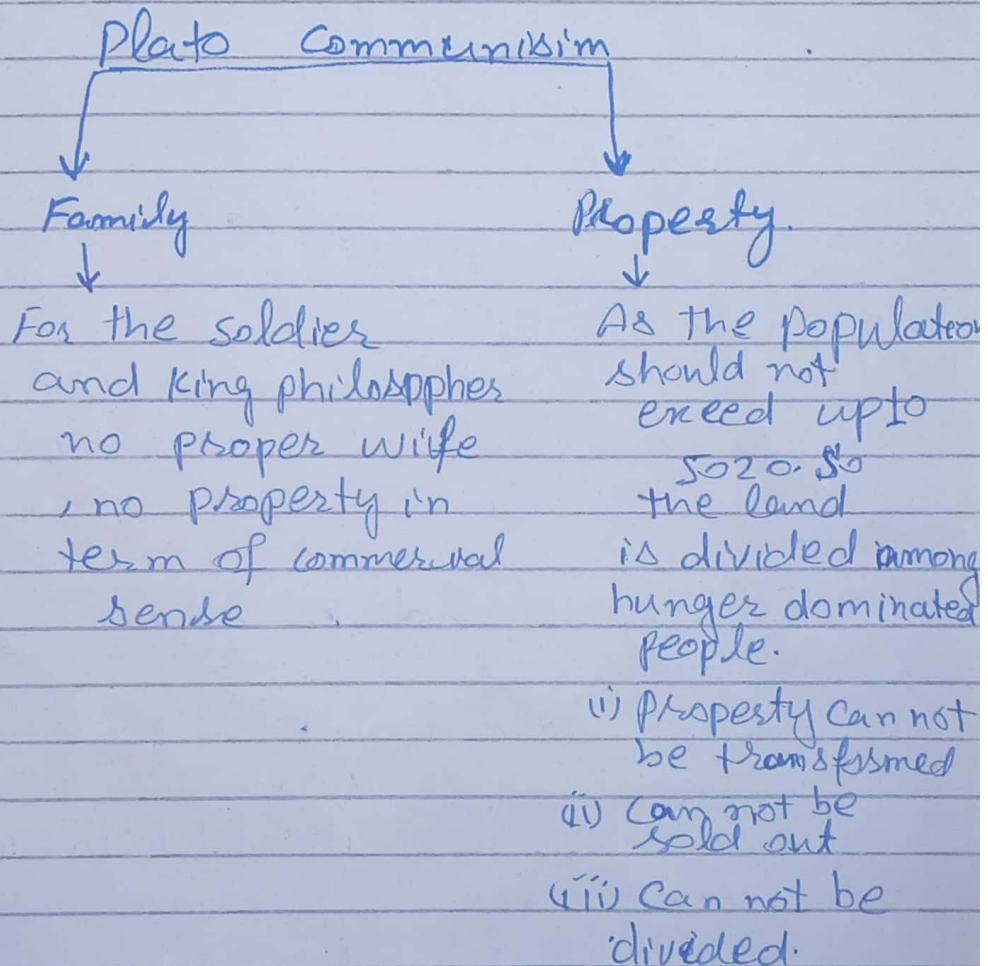 Plato Communisim
Family
For the soldier
and king philosppher
no proper wife
, no property in
term of commerval
sense
Property.
As the populateon
should not
exeed upto
5020. So
the land
is divided among
hunger dominated
people.
(i) Property can not
be transfsmed
(ii) can not be
sold out
(iii) Can not be
divided.